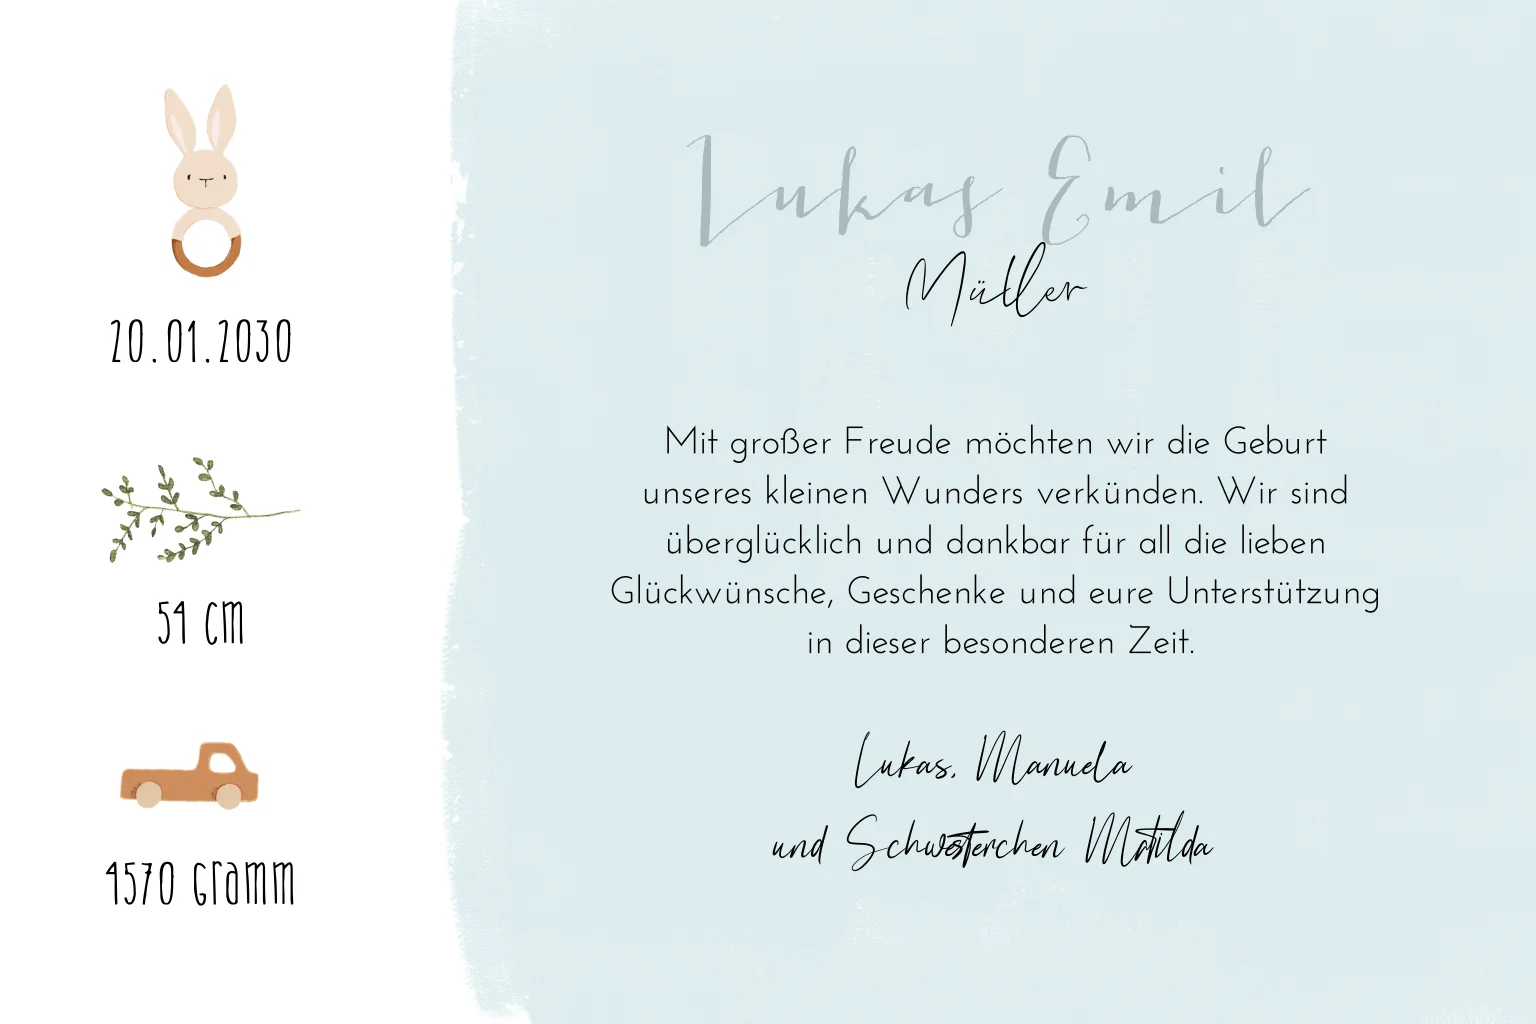 20.01.2030
54 cm
4570 Gramm
Lukas Emil
Müller
Mit großer Freude möchten wir die Geburt
unseres kleinen Wunders verkünden. Wir sind
überglücklich und dankbar für all die lieben
Glückwünsche, Geschenke und eure Unterstützung
in dieser besonderen Zeit.
Lukas, Manuela
und Schwesterchen Matilda